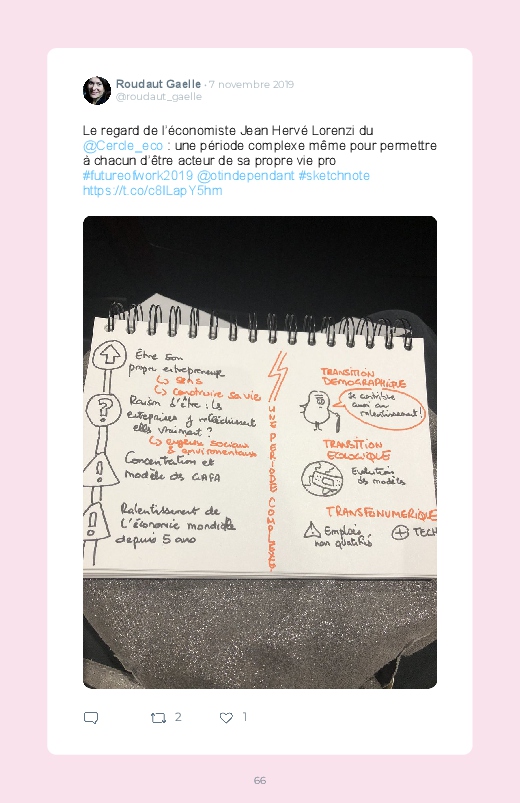 Roudaut Gaelle · 7 novembre 2019
@roudaut_gaelle
Le regard de l'économiste Jean Hervé Lorenzi du
@Cercle_eco : une période complexe même pour permettre
à chacun d'être acteur de sa propre vie pro
#futureofwork2019 @otindependant #sketchnote
https://t.co/c8lLapY5hm
Être son
propre entrepreneur
↳ sens
↳ construire sa vie
Raison d'être : les
entreprises y réfléchissent
elles vraiment ?
↳ enjeux sociaux
& environnementaux
Concentration et
modèle des GAFA
Ralentissement de
l'économie mondiale
depuis 5 ans
UNE PÉRIODE COMPLEXE
TRANSITION
DÉMOGRAPHIQUE
Je contribue
aussi au
ralentissement !
TRANSITION
ECOLOGIQUE
Evolution
des modèles
TRANSFONUMERIQUE
Emplois
non qualifiés
TECH
2
1
66